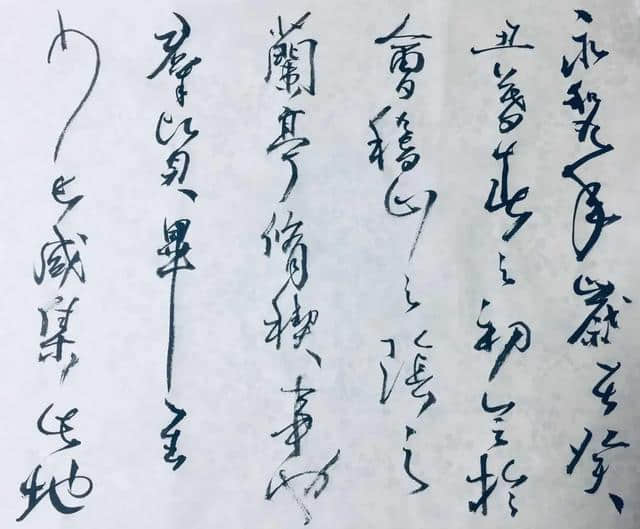 永和九年歲在癸
丑暮春之初会於
會稽山之陰之
蘭亭脩禊事也
羣賢畢至
少長咸集此地